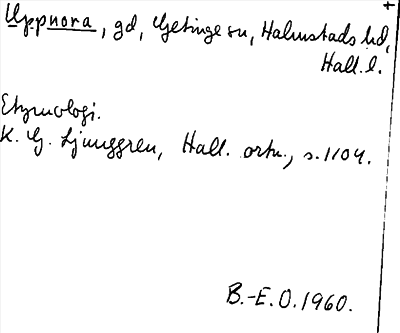 +
Uppnora, gd, Getinge sn, Halmstads hd,
Hall. l.
Etymologi.
K. G. Ljunggren, Hall. ortn., s. 1104.
B.-E. O. 1960.